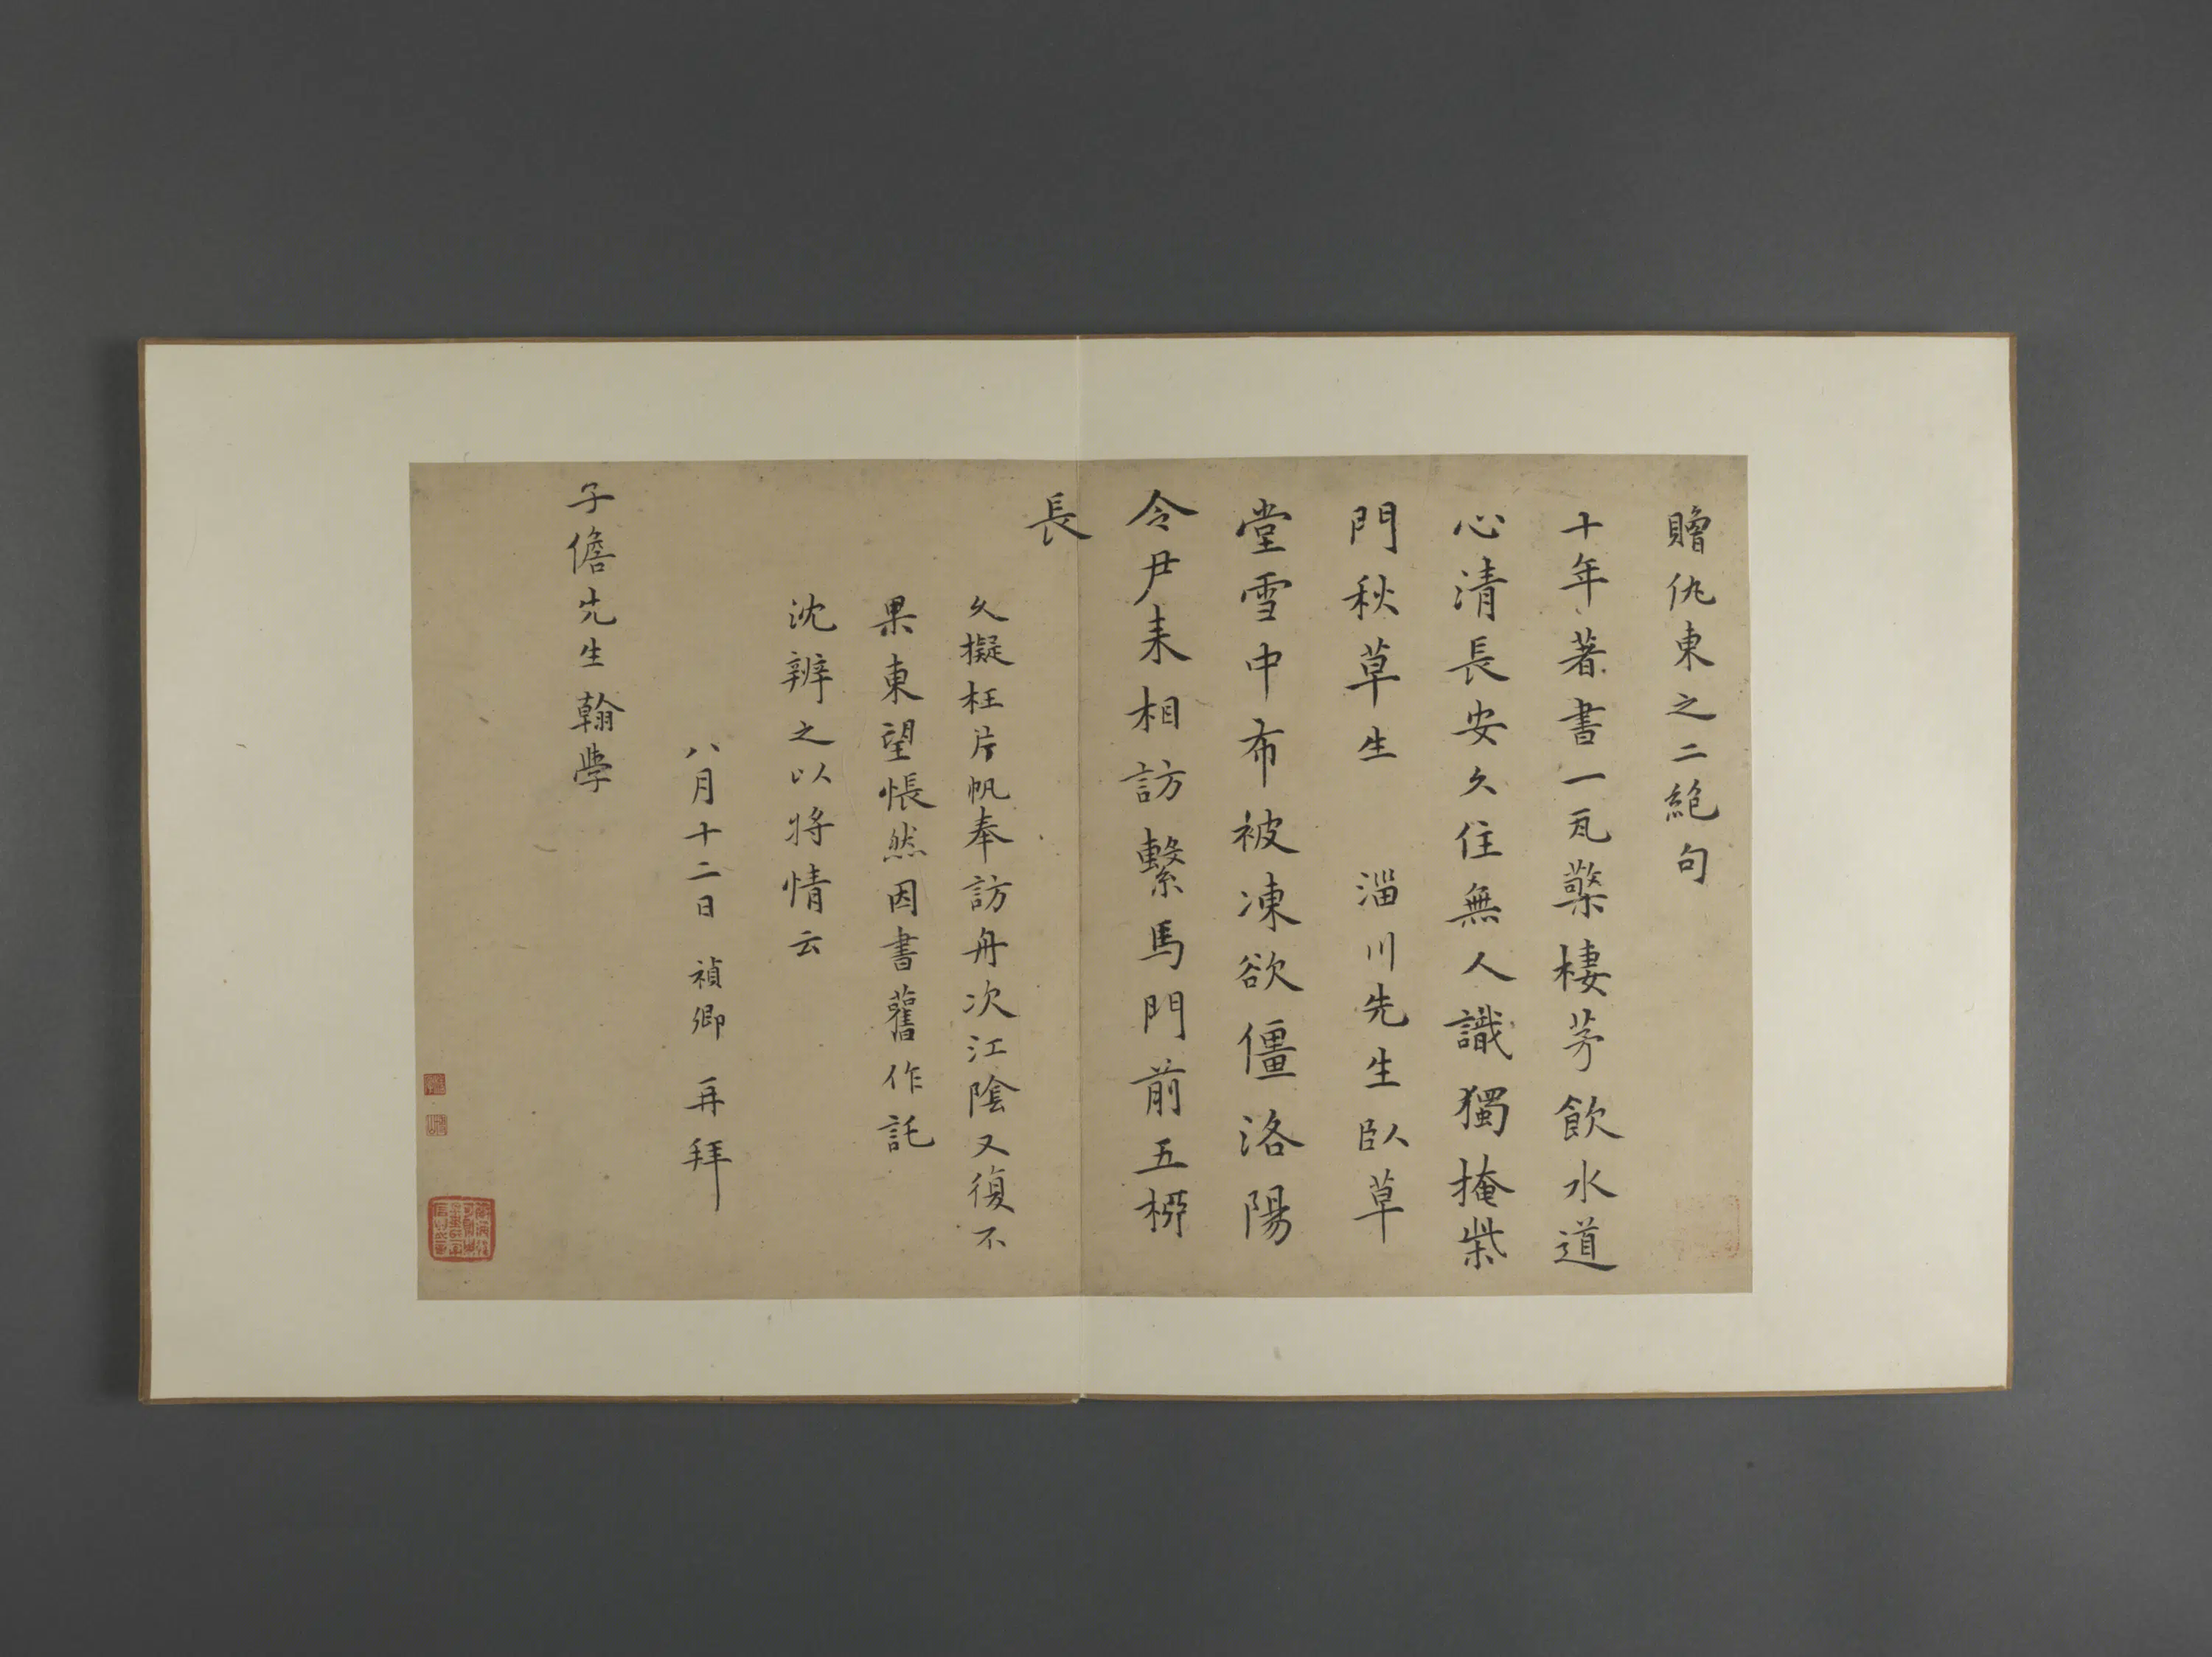 贈仇東之二絕句
十年著書一瓦檠棲茅飲水道
心清長安久住無人識獨掩柴
門秋草生 淄川先生臥草
堂雪中布被凍欲僵洛陽
令尹來相訪繫馬門前五柳
長
久擬枉片帆奉訪舟次江陰又復不
果東望悵然因書舊作託
沈辨之以將情云
八月十二日禎卿再拜
子儋先生翰學